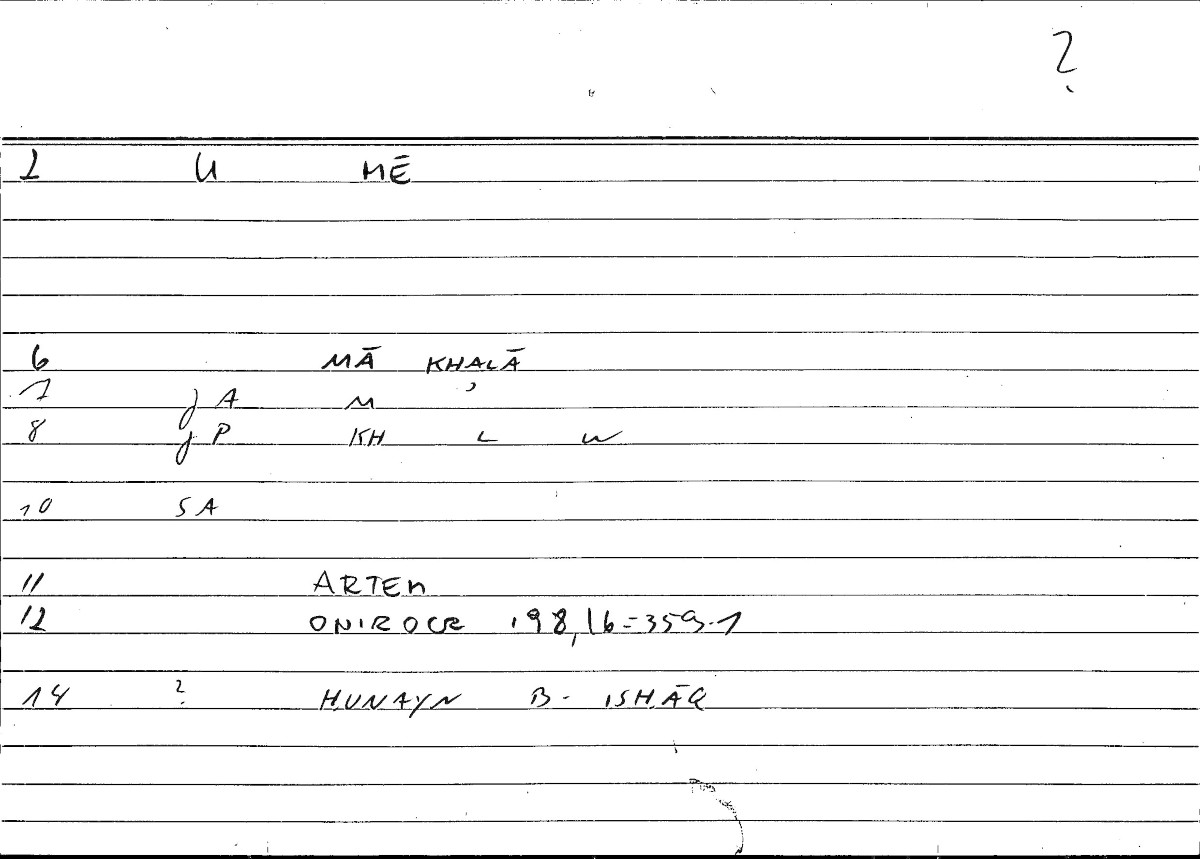 ?
1 U MĒ
6 MĀ KHALĀ
7 j A M
8 j P KH L W
10 SA
11 ARTEM
12 ONIROCR 198,16=359.1
14 ? ḤUNAYN B. ISḤĀQ